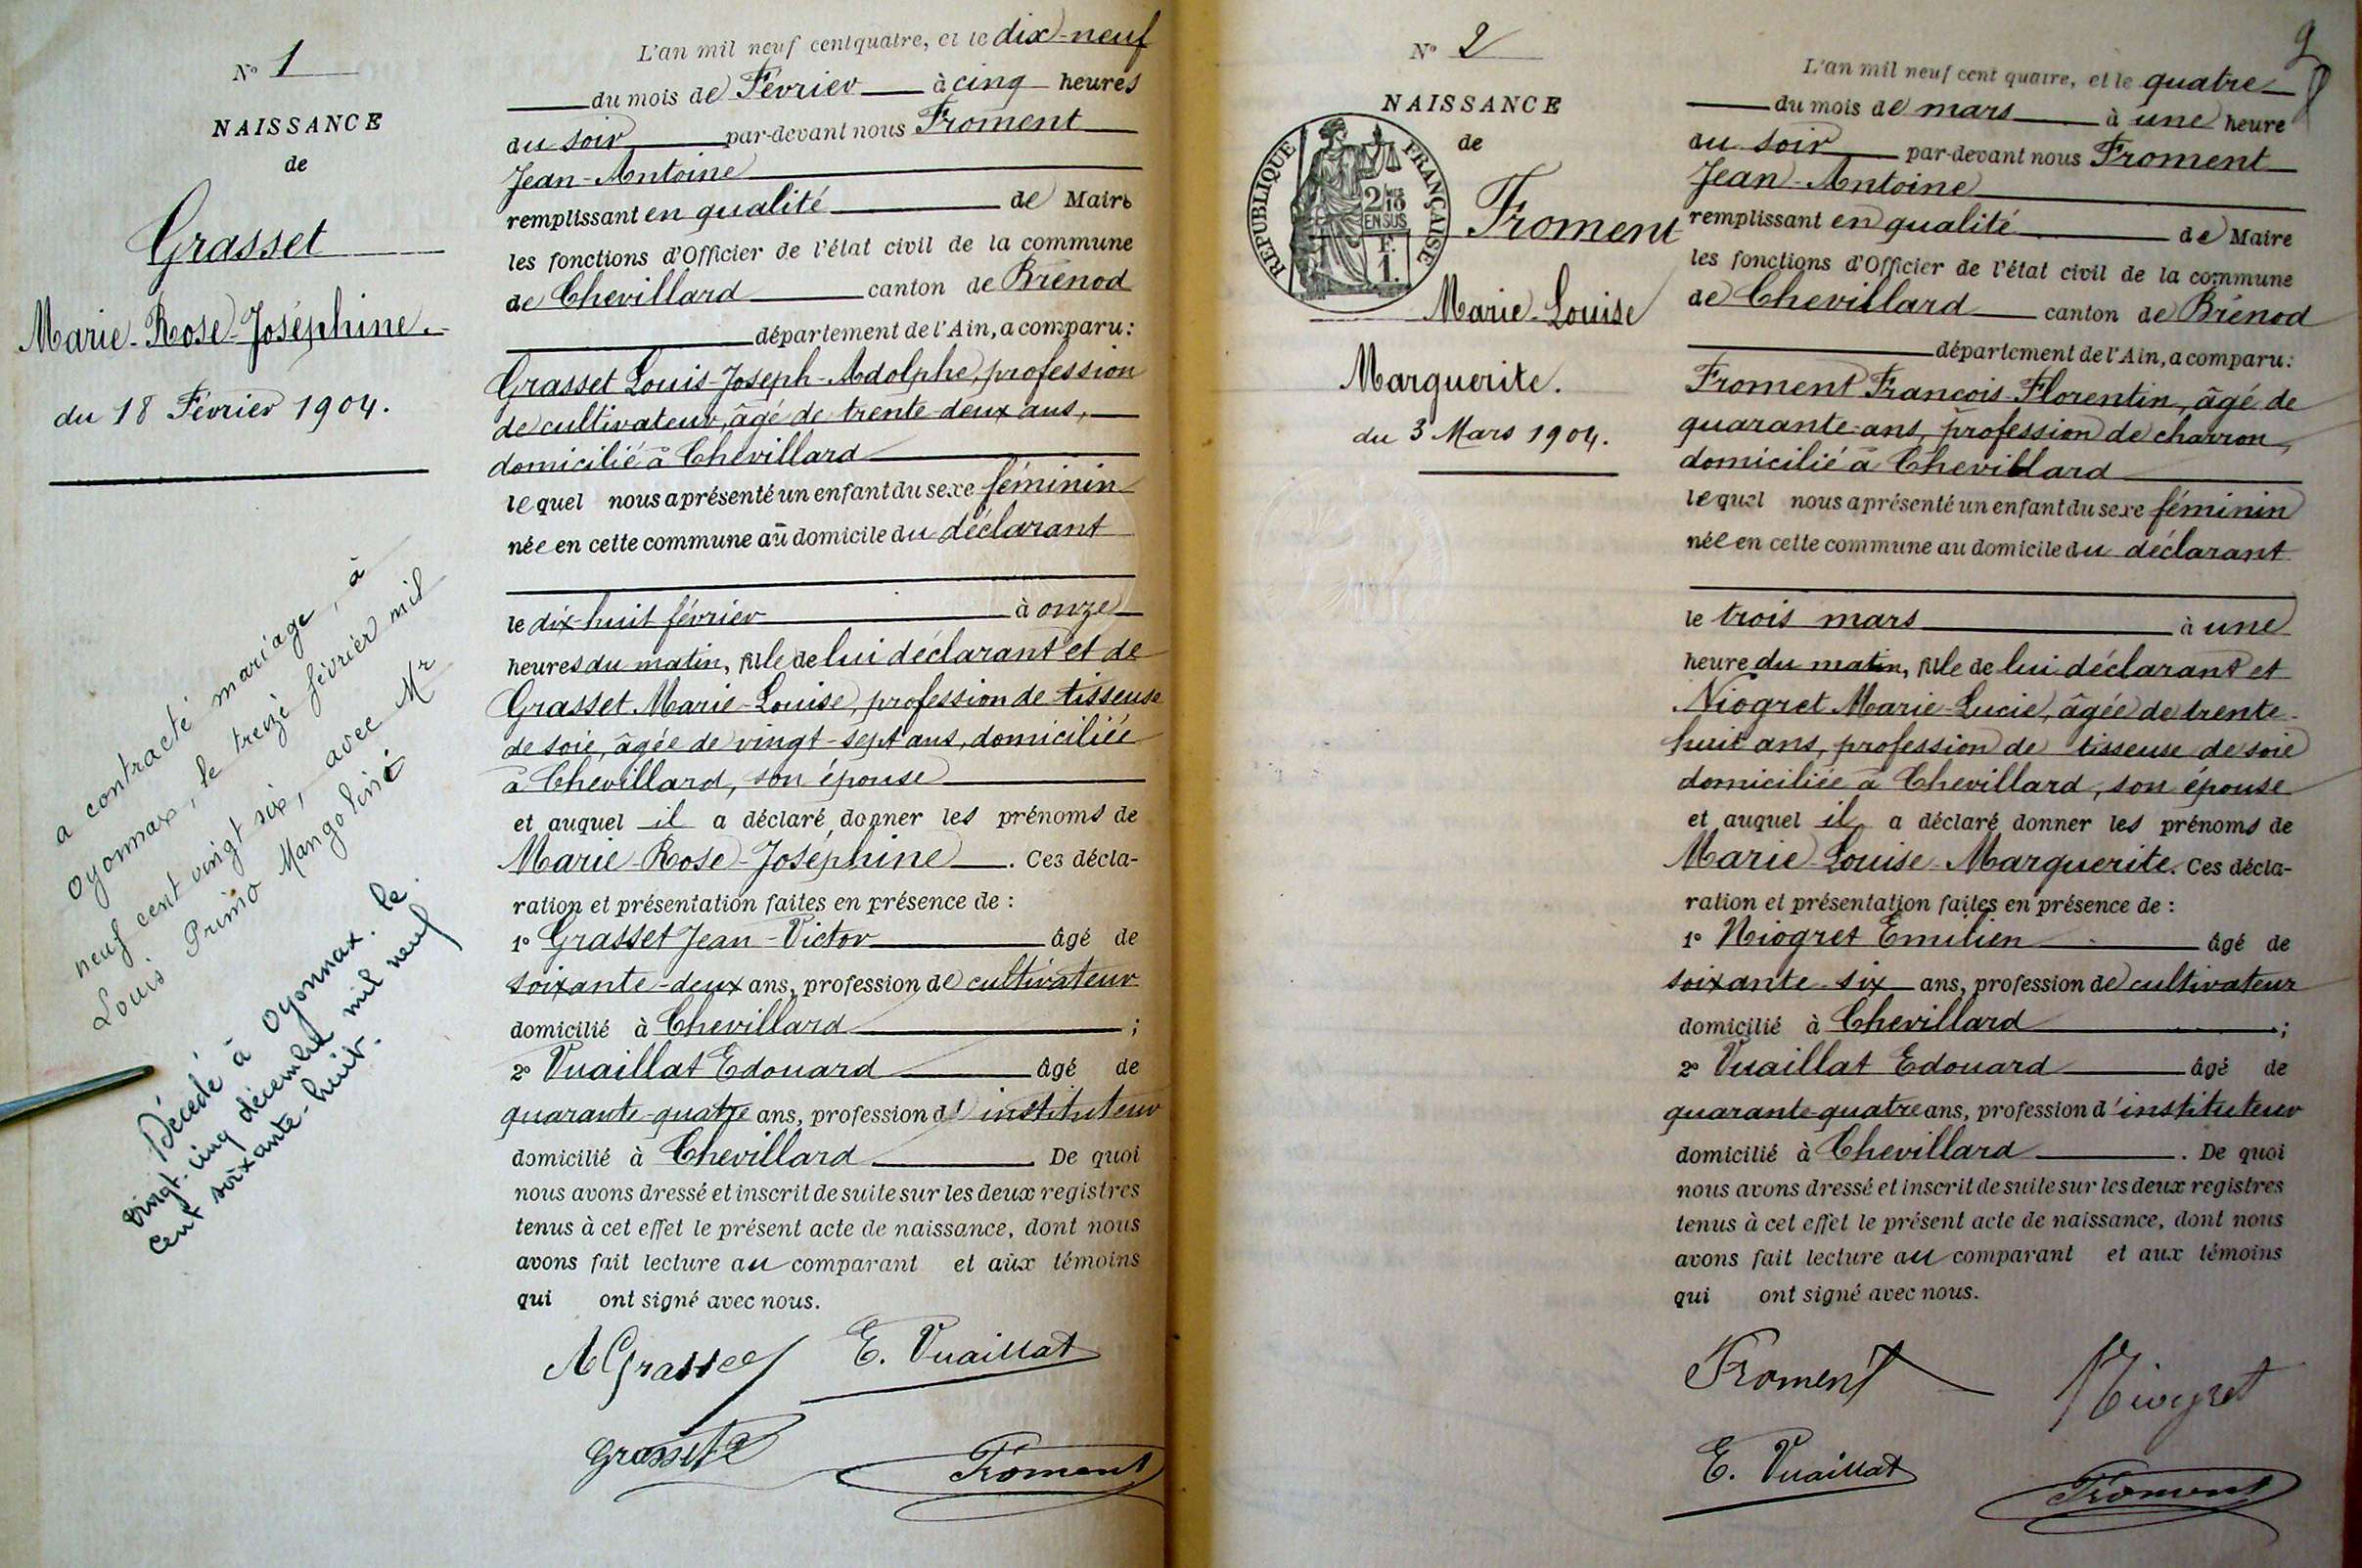 N° 1
NAISSANCE
de
Grasset
Marie-Rose-Joséphine.
du 18 Février 1904.
a contracté mariage, à
Oyonnax, le treize février mil
neuf cent vingt six, avec Mr
Louis Primo Mangolini
Décédé à Oyonnax. le
vingt-cinq décembre mil neuf
cent soixante-huit.
L'an mil neuf cent quatre, et le dix-neuf
du mois de Février à cinq heures
du soir par-devant nous Froment
Jean-Antoine
remplissant en qualité de Maire
les fonctions d'Officier de l'état civil de la commune
de Chevillard canton de Brénod
département de l'Ain, a comparu:
Grasset Louis-Joseph-Adolphe, profession
de cultivateur, âgé de trente-deux ans,
domicilié à Chevillard
lequel nous a présenté un enfant du sexe féminin
née en cette commune au domicile du déclarant
le dix-huit février à onze
heures du matin, fille de lui déclarant et de
Grasset Marie-Louise, profession de tisseuse
de soie, âgée de vingt-sept ans, domiciliée
à Chevillard, son épouse
et auquel il a déclaré donner les prénoms de
Marie-Rose-Joséphine. Ces décla-
ration et présentation faites en présence de :
1° Grasset Jean-Victor âgé de
soixante-deux ans, profession de cultivateur
domicilié à Chevillard ;
2° Vuaillat Edouard âgé de
quarante-quatre ans, profession d'instituteur
domicilié à Chevillard. De quoi
nous avons dressé et inscrit de suite sur les deux registres
tenus à cet effet le présent acte de naissance, dont nous
avons fait lecture au comparant et aux témoins
qui ont signé avec nous.
A Grasset E. Vuaillat
Grasset Froment
2
N° 2
NAISSANCE
de
RÉPUBLIQUE FRANÇAISE
2/10
EN SUS
F.
1.
Froment
Marie-Louise
Marguerite.
du 3 Mars 1904.
L'an mil neuf cent quatre, et le quatre
du mois de mars à une heure
du soir par-devant nous Froment
Jean-Antoine
remplissant en qualité de Maire
les fonctions d'Officier de l'état civil de la commune
de Chevillard canton de Brénod
département de l'Ain, a comparu:
Froment François-Florentin, âgé de
quarante-ans, profession de charron,
domicilié à Chevillard
lequel nous a présenté un enfant du sexe féminin
née en cette commune au domicile du déclarant
le trois mars à une
heure du matin, fille de lui déclarant et
Niogret Marie-Lucie, âgée de trente-
huit ans, profession de tisseuse de soie
domiciliée à Chevillard, son épouse
et auquel il a déclaré donner les prénoms de
Marie-Louise-Marguerite. Ces décla-
ration et présentation faites en présence de :
1° Niogret Emilien âgé de
soixante-six ans, profession de cultivateur
domicilié à Chevillard ;
2° Vuaillat Edouard âgé de
quarante-quatre ans, profession d'instituteur
domicilié à Chevillard. De quoi
nous avons dressé et inscrit de suite sur les deux registres
tenus à cet effet le présent acte de naissance, dont nous
avons fait lecture au comparant et aux témoins
qui ont signé avec nous.
Froment Niogret
E. Vuaillat Froment